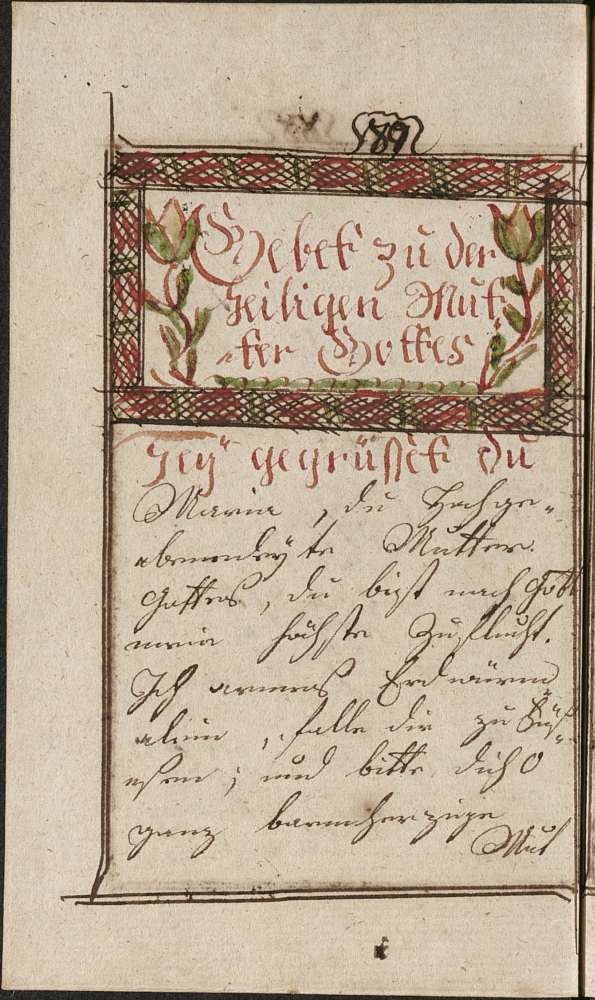 189
Gebet zu der
Heiligen Mut¬
ter Gottes
Sey gegrüsset du
Maria, du Hochge¬
benendeyte Mutter
Gottes, du bist nach Gott
meine höchste Zuflucht.
Ich armes Erdwürm
elein, falle dir zu Füß
esen, und bitte dich O
ganz barmherzige
Mut